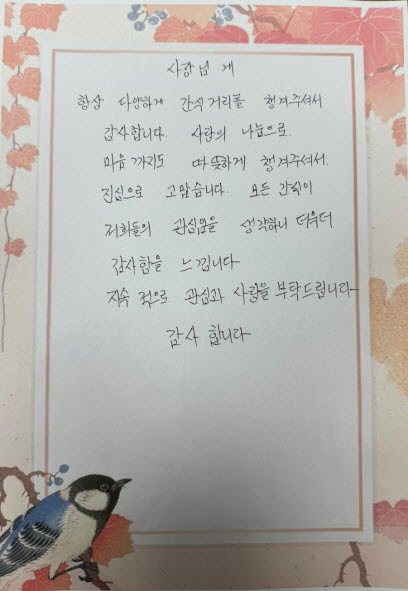 사장님 께
항상 다양하게 간식거리를 챙겨주셔서
감사합니다. 사랑의 나눔으로.
마음 까지도 따뜻하게 챙겨주셔서.
진심으로 고맙습니다. 모든 간식이
저희들의 관심임을 생각하니 더우더
감사함을 느낍니다
지속 적으로 관심과 사랑을 부탁드립니다
감사 합니다